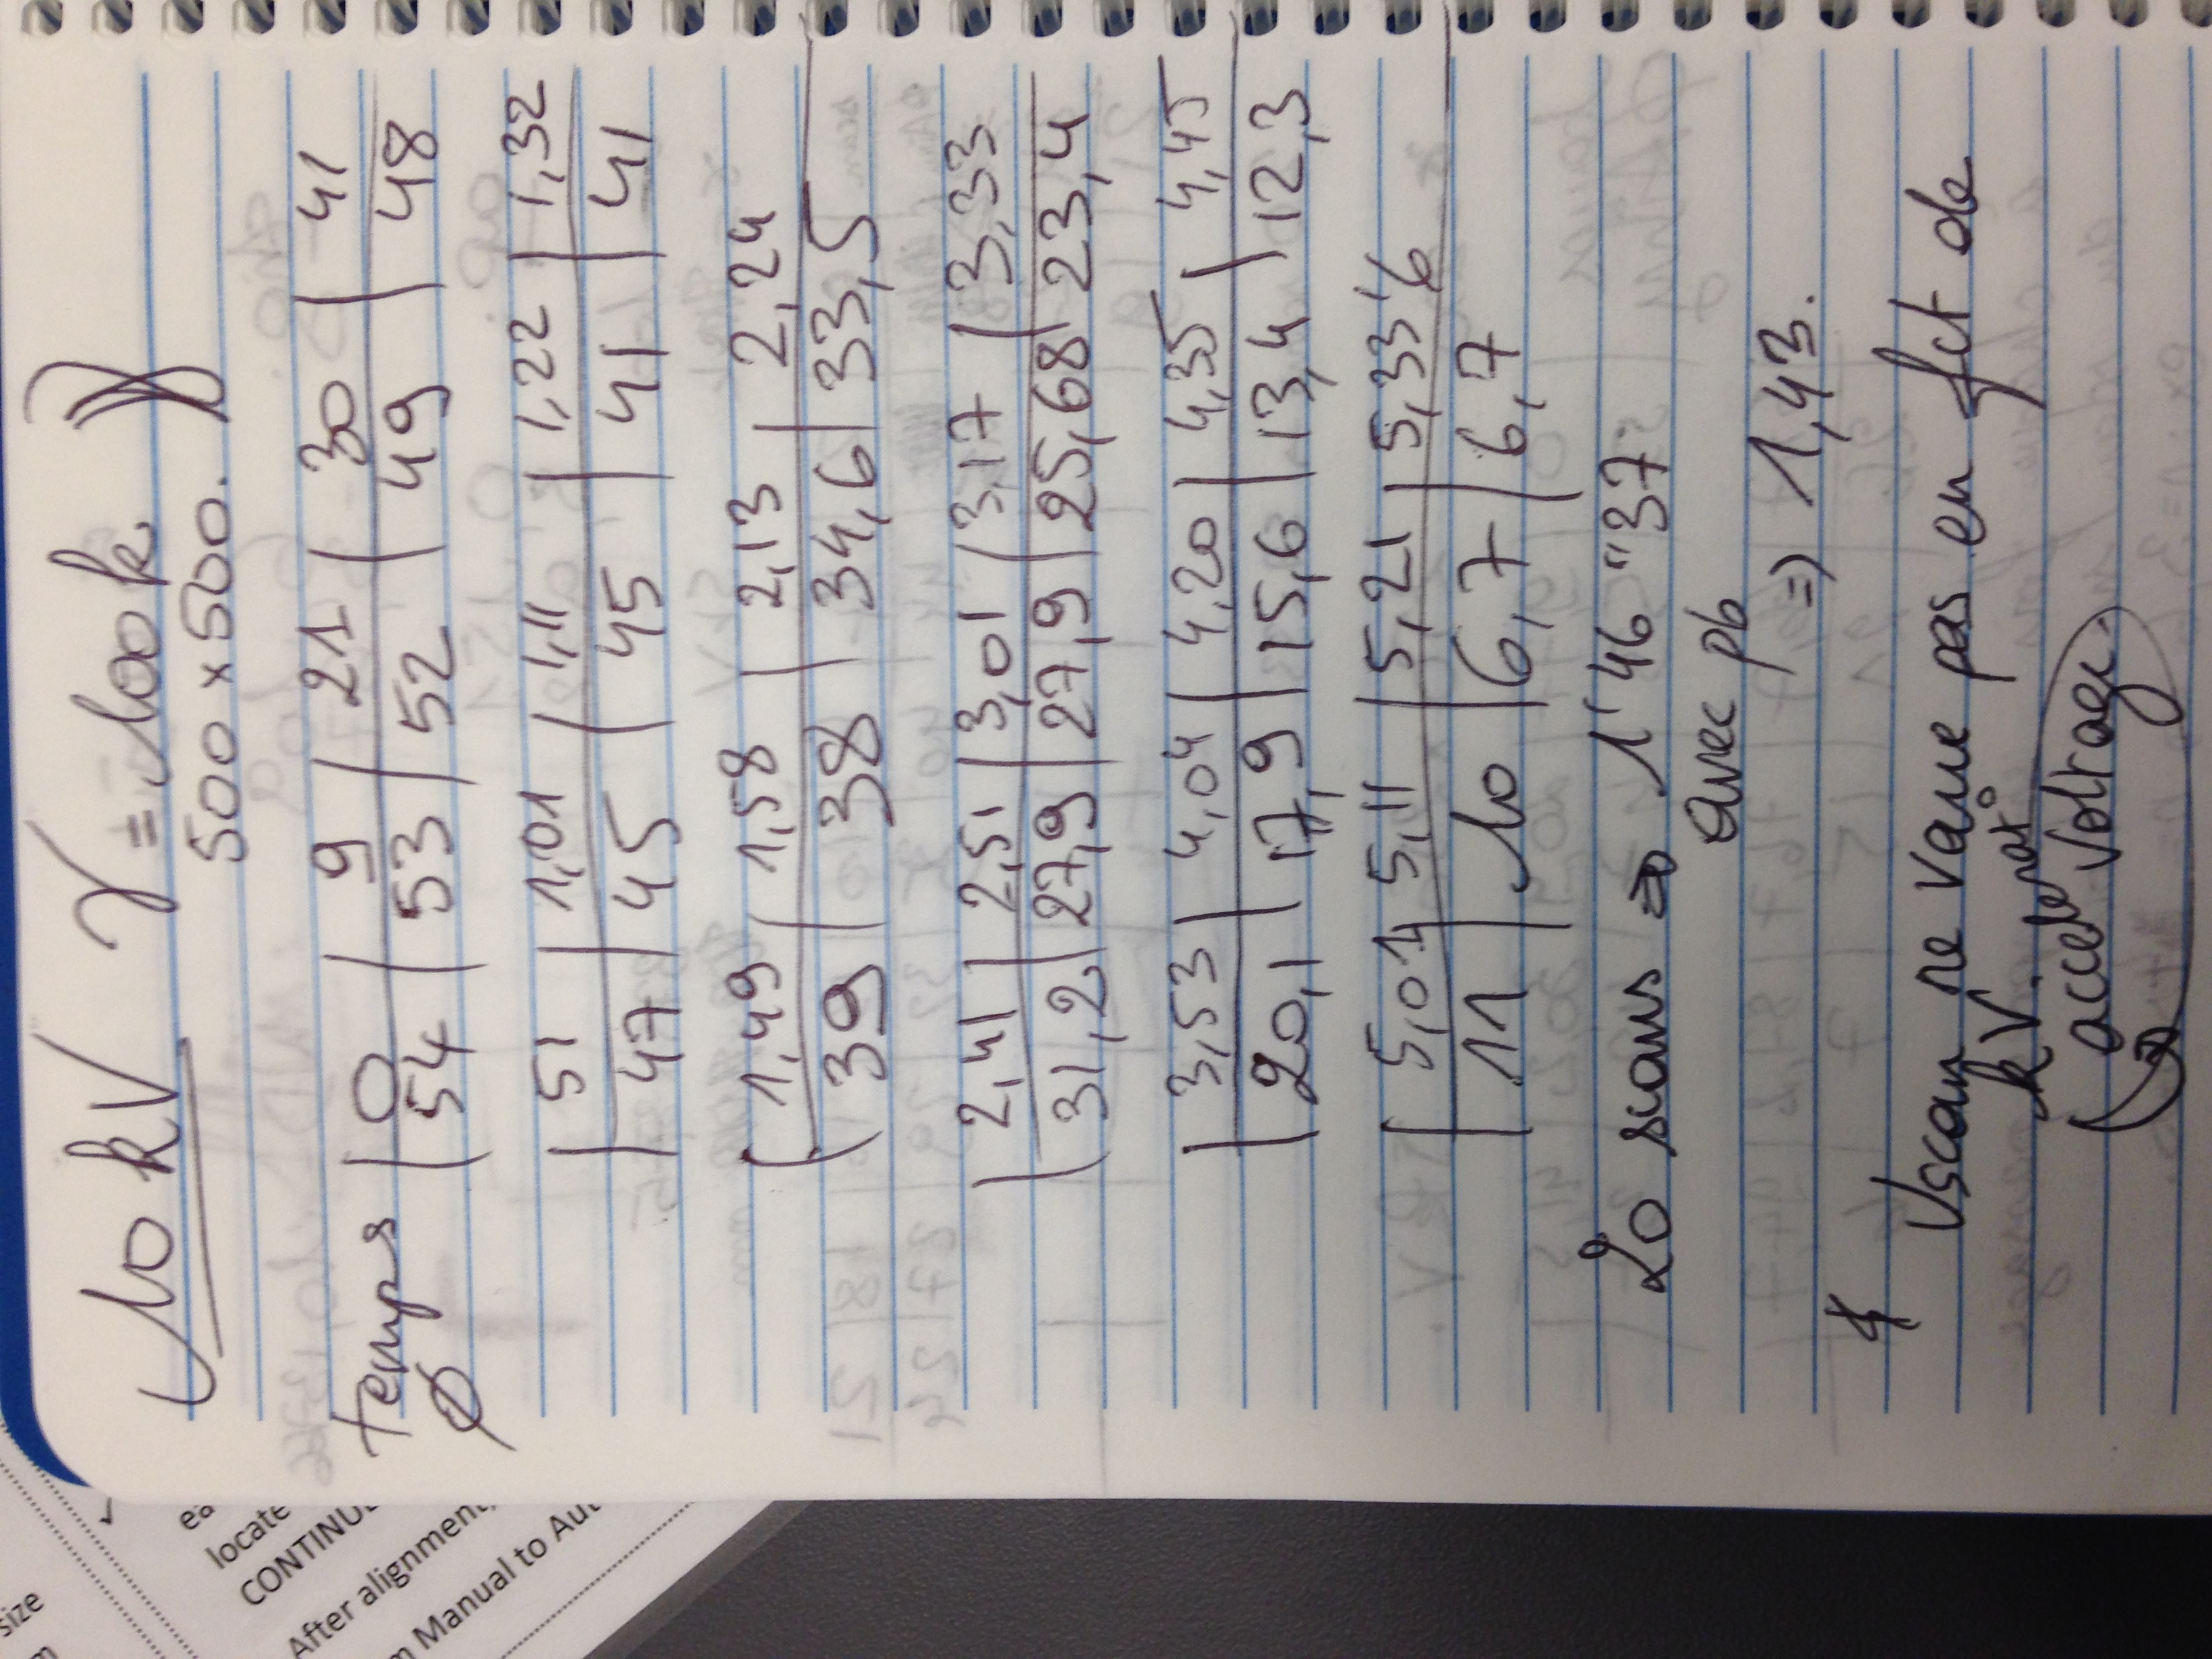 size
m
ea
locate
CONTINU
After alignment,
m Manual to Aut
10 kV γ = 100 k
500 x 500.
temps | 0 | 9 | 21 | 30 | 41
Ø | 54 | 53 | 52 | 49 | 48
| 51 | 1,01 | 1,11 | 1,22 | 1,32
| 47 | 45 | 45 | 41 | 41
| 1,49 | 1,58 | 2,13 | 2,24
| 39 | 38 | 34,6 | 33,5
| 2,41 | 2,51 | 3,01 | 3,17 | 3,33
| 31,2 | 27,9 | 27,9 | 25,68 | 23,4
| 3,53 | 4,04 | 4,20 | 4,35 | 4,45
| 20,1 | 17,9 | 15,6 | 13,4 | 12,3
| 5,01 | 5,11 | 5,21 | 5,33'6
| 11 | 10 | 6,7 | 6,7
20 scans => 1'46"37
avec pb
=> 1,43.
Vscan ne varie pas en fct de
kV.
accelerat°
voltage.